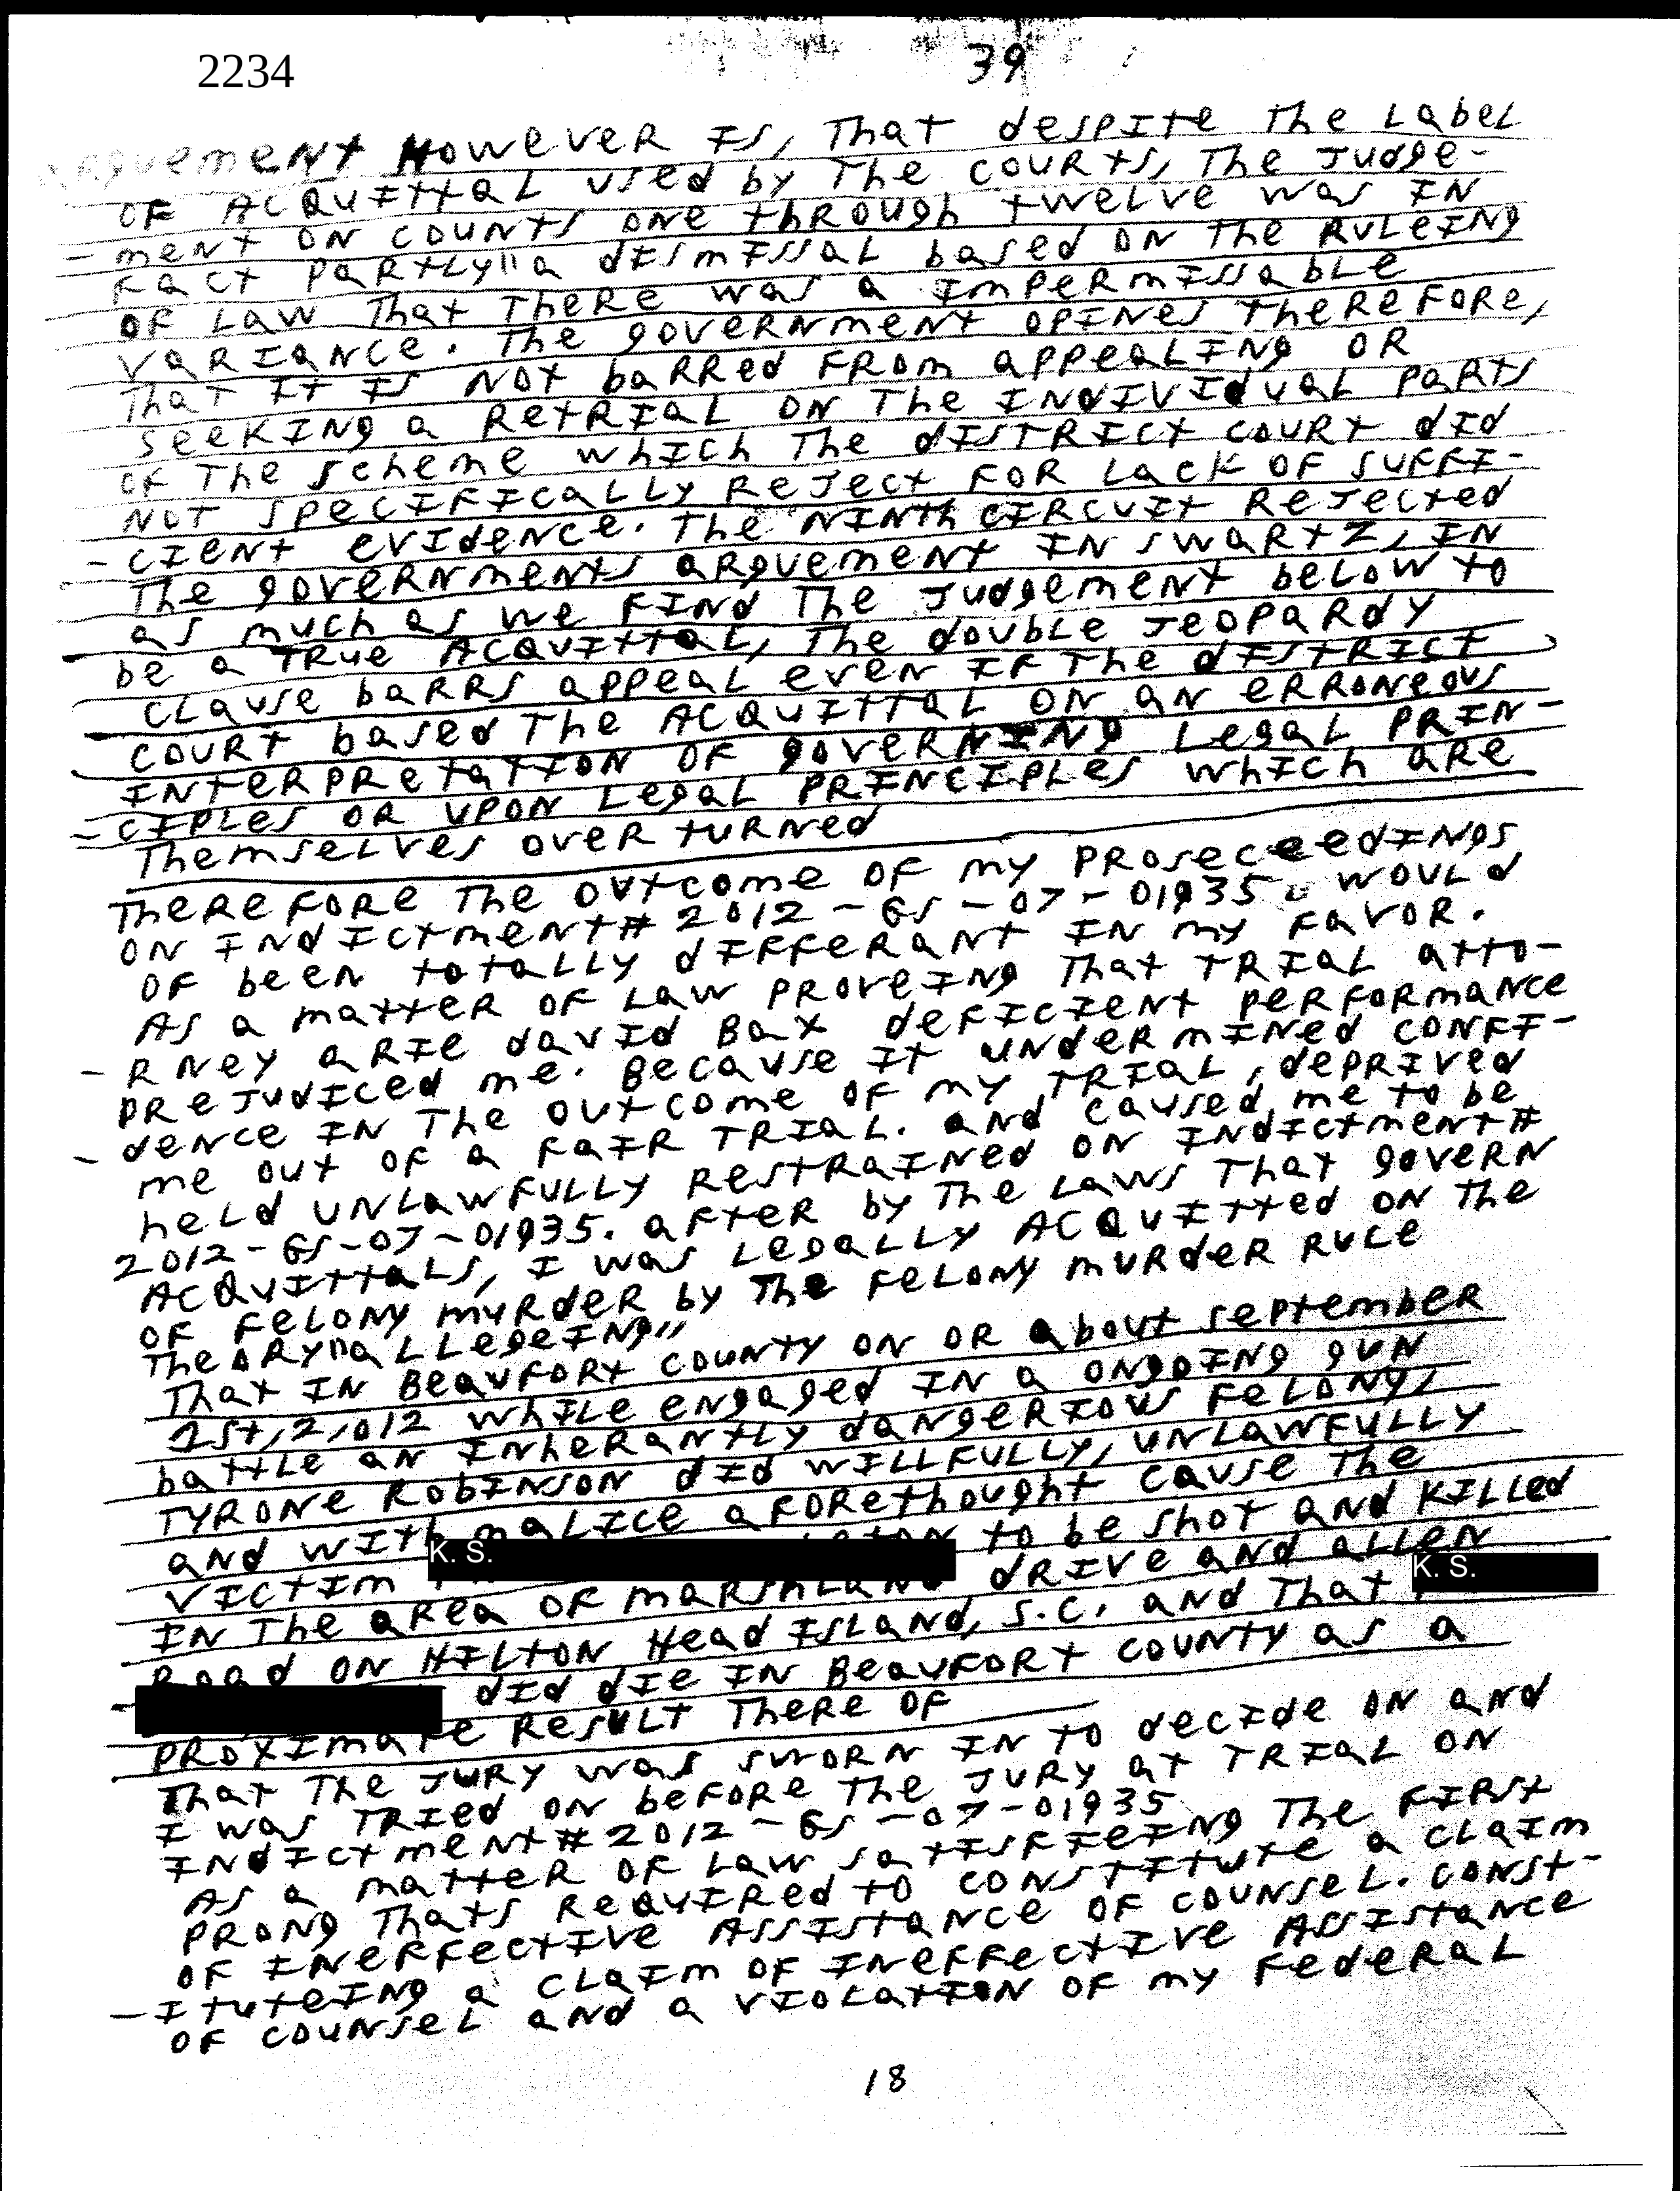 2234
39
arguement However Is, That despIte The LabeL
OF ACQUITTaL used by The COURTS, The Judge-
- ment ON COUNTS ONE THROUGH TWELVE was IN
Fact PARTLY "a dIsmIssaL based ON The RULeING
OF Law That There was a ImpeRmIssable
VaRIaNce. The goveRNment OPINes TheReFORe,
That IT Is NOT baRRed FROM appeaLINg OR
seekINg a RetRIaL ON The INdIVIduaL paRTs
OF The scheme whIch The dISTRIct COURT dId
NOT specIFIcaLLy ReJect FOR Lack OF SUFFI-
- cIeNT evIdence. The NINth CIRCUIT ReJected
The goveRNments aRguement IN swaRTz, IN
as much as we FINd The Judgement beLow TO
be a TRue AcquITTaL, The double JeopaRdy
cLause baRRs appeaL even IF The dIstRIct
COURT based The ACQUITTaL ON aN eRRoNeous
INTeRpRetatION OF goveRNINg LegaL PRIN-
- cIpLes OR upon LegaL PRINcIpLes whIch aRe
ThemseLves oveRtuRNed
TheReFORe The OutCome OF my PROseceedINgs
ON INdIctment# 2012-GS-07-01935 wouLd
OF beeN totaLLy dIFFeRaNt IN my FavoR.
As a matteR OF Law PROveINg That TRIaL atto-
- RNey aRIe davId Bax deFIcIeNt peRFORmance
PReJudIced me. Because It undeRmINed CONFI-
- dence IN The outcome OF my TRIaL, depRIved
me out OF a FaIR TRIaL. aNd caused me to be
heLd unLawFuLLy RestRaINed ON INdIctment#
2012-GS-07-01935. aFteR by The Laws That goveRN
ACQUITTaLs, I was LegaLLy ACQUITTed ON The
OF FeLONy muRdeR by The FeLONy muRdeR RuLe
TheoRy "aLLegeINg"
That IN BeauFORt COUNTY ON OR about septembeR
1st, 2,012 whILe engaged IN a ONgOINg guN
battLe aN INheRaNtLy dangeRIous FeLONy,
TyRONe RobINsoN dId wILLFuLLy, uNLawFuLLy
aNd wIth maLIce aForethought cause The
vIctIm K. S. to be shot aNd kILLed
IN The aRea OF maRshLaNd dRIve aNd aLLeN
Road ON HILtoN Head IsLaNd, S.C. aNd That K. S.
dId dIe IN BeauFORt COUNTY as a
PROxImate ResuLt TheRe OF
That The JuRy was swORN IN TO decIde ON aNd
I was TRIed ON beFORe The JuRy at TRIaL ON
INdIctment# 2012-GS-07-01935
As a matteR OF Law satIsFIeINg The FIRst
PRONg Thats RequIRed to coNstItute a cLaIm
OF INeFFectIve AssIstaNce OF couNseL. coNst-
- ItuteINg a cLaIm OF INeFFectIve AssIstaNce
OF couNseL aNd a vIoLatIoN OF my FedeRaL
18